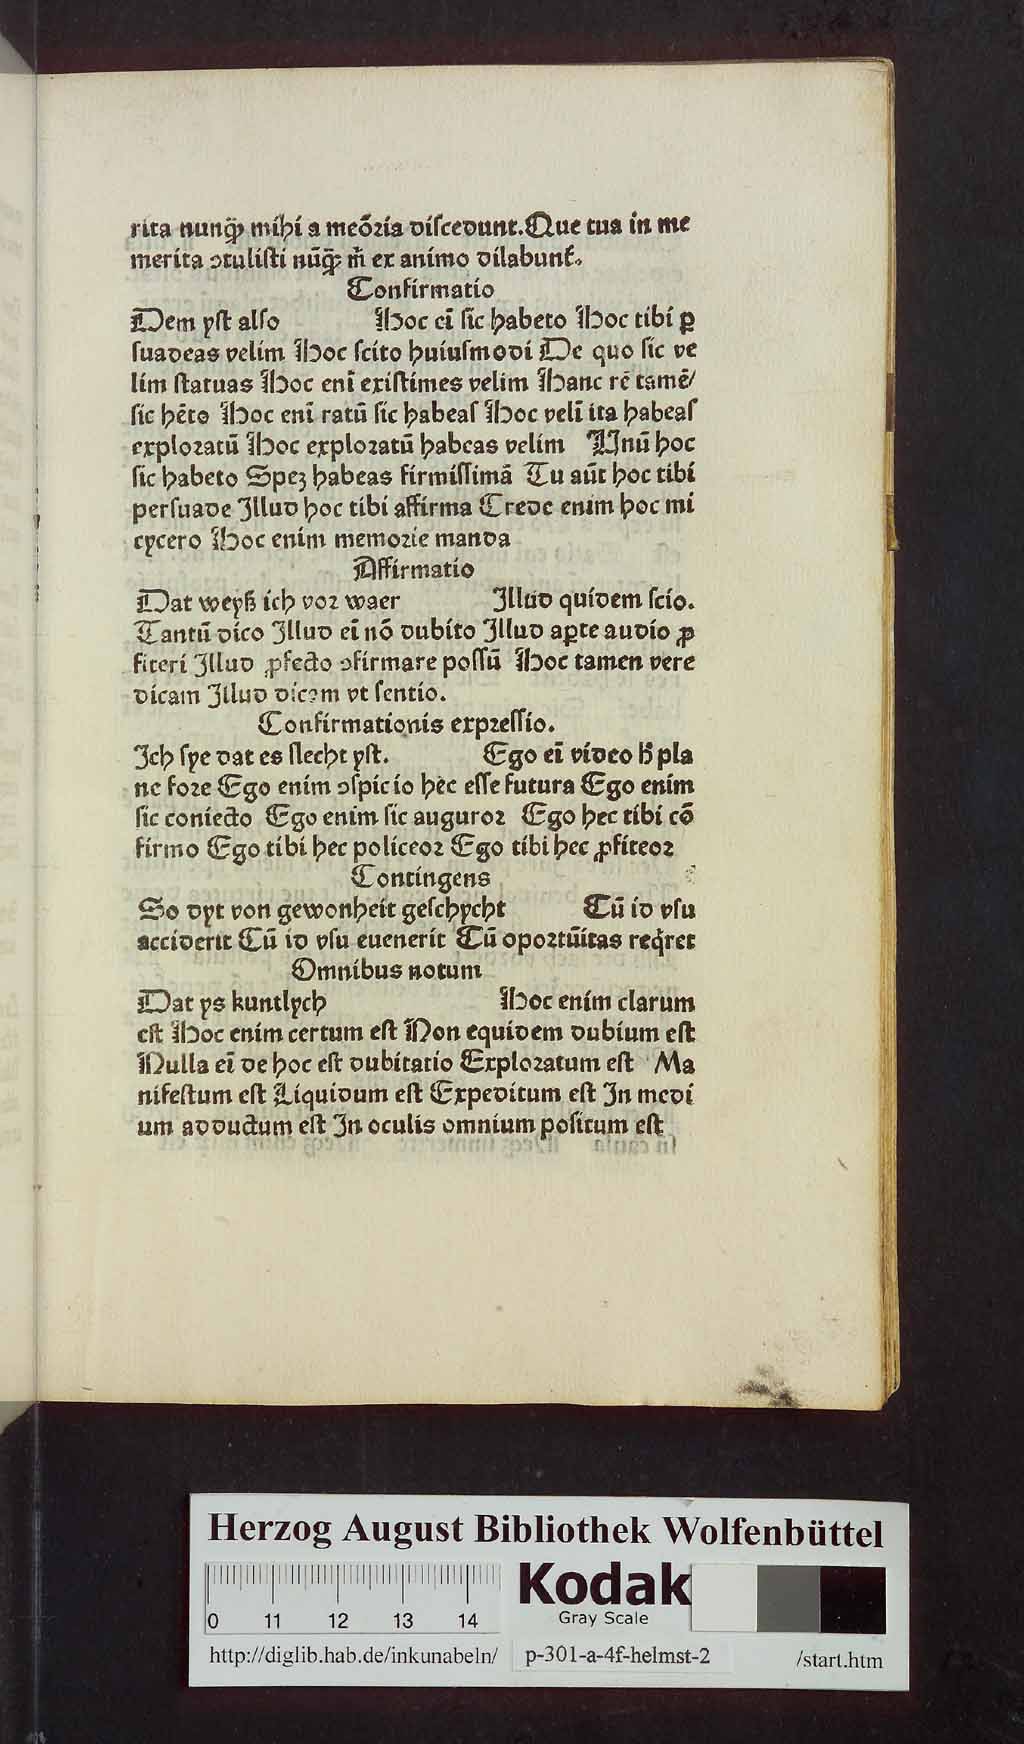 rita nunq̃ꝫ mihi a meõꝛia diſcedunt. Que tua in me
merita ↄtuliſti nũq̃ꝫ m̃ ex animo dilabunt᷑.
Confirmatio
Dem yſt alſo Hoc eĩ ſic habeto Hoc tibi ꝑ
ſuadeas velim Hoc ſcito huiuſmodi De quo ſic ve
lim ſtatuas Hoc enĩ exiſtimes velim Hanc rẽ tamẽ/
ſic hẽto Hoc enĩ ratũ ſic habeaſ Hoc velĩ ita habeaſ
exploꝛatũ Hoc exploꝛatũ habeas velim Unũ hoc
ſic habeto Spez habeas firmiſſimã Tu aũt hoc tibi
perſuade Illud hoc tibi affirma Crede enim hoc mi
cycero Hoc enim memoꝛie manda
Affirmatio
Dat weyß ich voꝛ waer Illud quidem ſcio.
Tantũ dico Illud eĩ nõ dubito Illud aꝑte audio ꝓ
fiteri Illud ꝓfecto ↄfirmare poſſũ Hoc tamen vere
dicam Illud dicam vt ſentio.
Confirmationis expꝛeſſio.
Ich ſye dat es ſlecht yſt. Ego eĩ video h̃ pla
ne foꝛe Ego enim ↄſpicio hec eſſe futura Ego enim
ſic coniecto Ego enim ſic auguroꝛ Ego hec tibi cõ
firmo Ego tibi hec policeoꝛ Ego tibi hec ꝓfiteoꝛ
Contingens
So dyt von gewonheit geſchycht Cũ id vſu
acciderit Cũ id vſu euenerit Cũ opoꝛtũitas req̇ret
Omnibus notum
Dat ys kuntlych Hoc enim clarum
eſt Hoc enim certum eſt Non equidem dubium eſt
Nulla eĩ de hoc eſt dubitatio Exploꝛatum eſt Ma
nifeſtum eſt Liquidum eſt Expeditum eſt In medi
um adductum eſt In oculis omnium poſitum eſt
Herzog August Bibliothek Wolfenbüttel
0 11 12 13 14
Kodak
Gray Scale
http://diglib.hab.de/inkunabeln/ p-301-a-4f-helmst-2 /start.htm